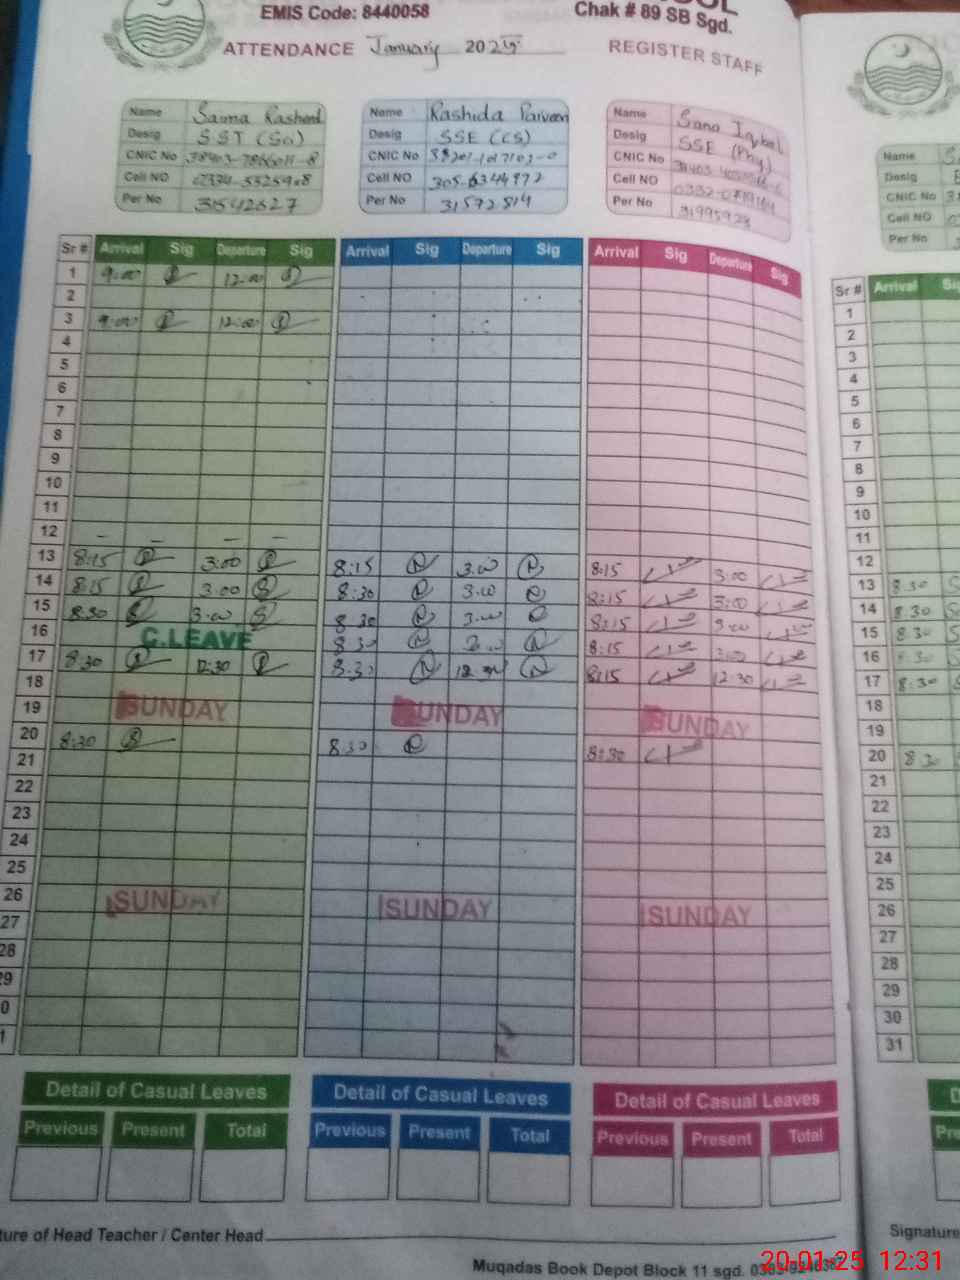 EMIS Code: 8440058
Chak # 89 SB Sgd.
ATTENDANCE January 2025 REGISTER STAFF
Name Saima Rasheed
Desig SST (Sci)
CNIC No
Cell NO
Per No 31542627
Name Rashida Parveen
Desig SSE (CS)
CNIC No
Cell NO 305-6344972
Per No 31572814
Name Sana Iqbal
Desig SSE (Phy)
CNIC No
Cell NO
Per No 31995928
Name
Desig
CNIC No
Cell NO
Per No
Sr # Arrival Sig Departure Sig Arrival Sig Departure Sig Arrival Sig Departure Sig Sr # Arrival
1 9:00 12:00 1
2 2
3 9:00 12:00 3
4 4
5 5
6 6
7 7
8 8
9 9
10 10
11 11
12 – – – – 12
13 8:15 3:00 8:15 3:00 8:15 3:00 13 8 30
14 8:15 3:00 8:30 3:00 8:15 3:00 14 8 30
15 8:30 3:00 8 30 3:00 8:15 3:00 15 8 30
16 C.LEAVE 8 30 8:15 3:00 16 8 30
17 8:30 12:30 8:30 12 30 8:15 12 30 17 8:30
18 18
19 SUNDAY SUNDAY SUNDAY 19
20 8:30 8 30 8:30 20 8 30
21 21
22 22
23 23
24 24
25 25
26 SUNDAY SUNDAY SUNDAY 26
27 27
28 28
29
30
31
Detail of Casual Leaves Detail of Casual Leaves Detail of Casual Leaves
Previous Present Total Previous Present Total Previous Present Total
ture of Head Teacher / Center Head Signature
Muqadas Book Depot Block 11 sgd.
20-01-25 12:31